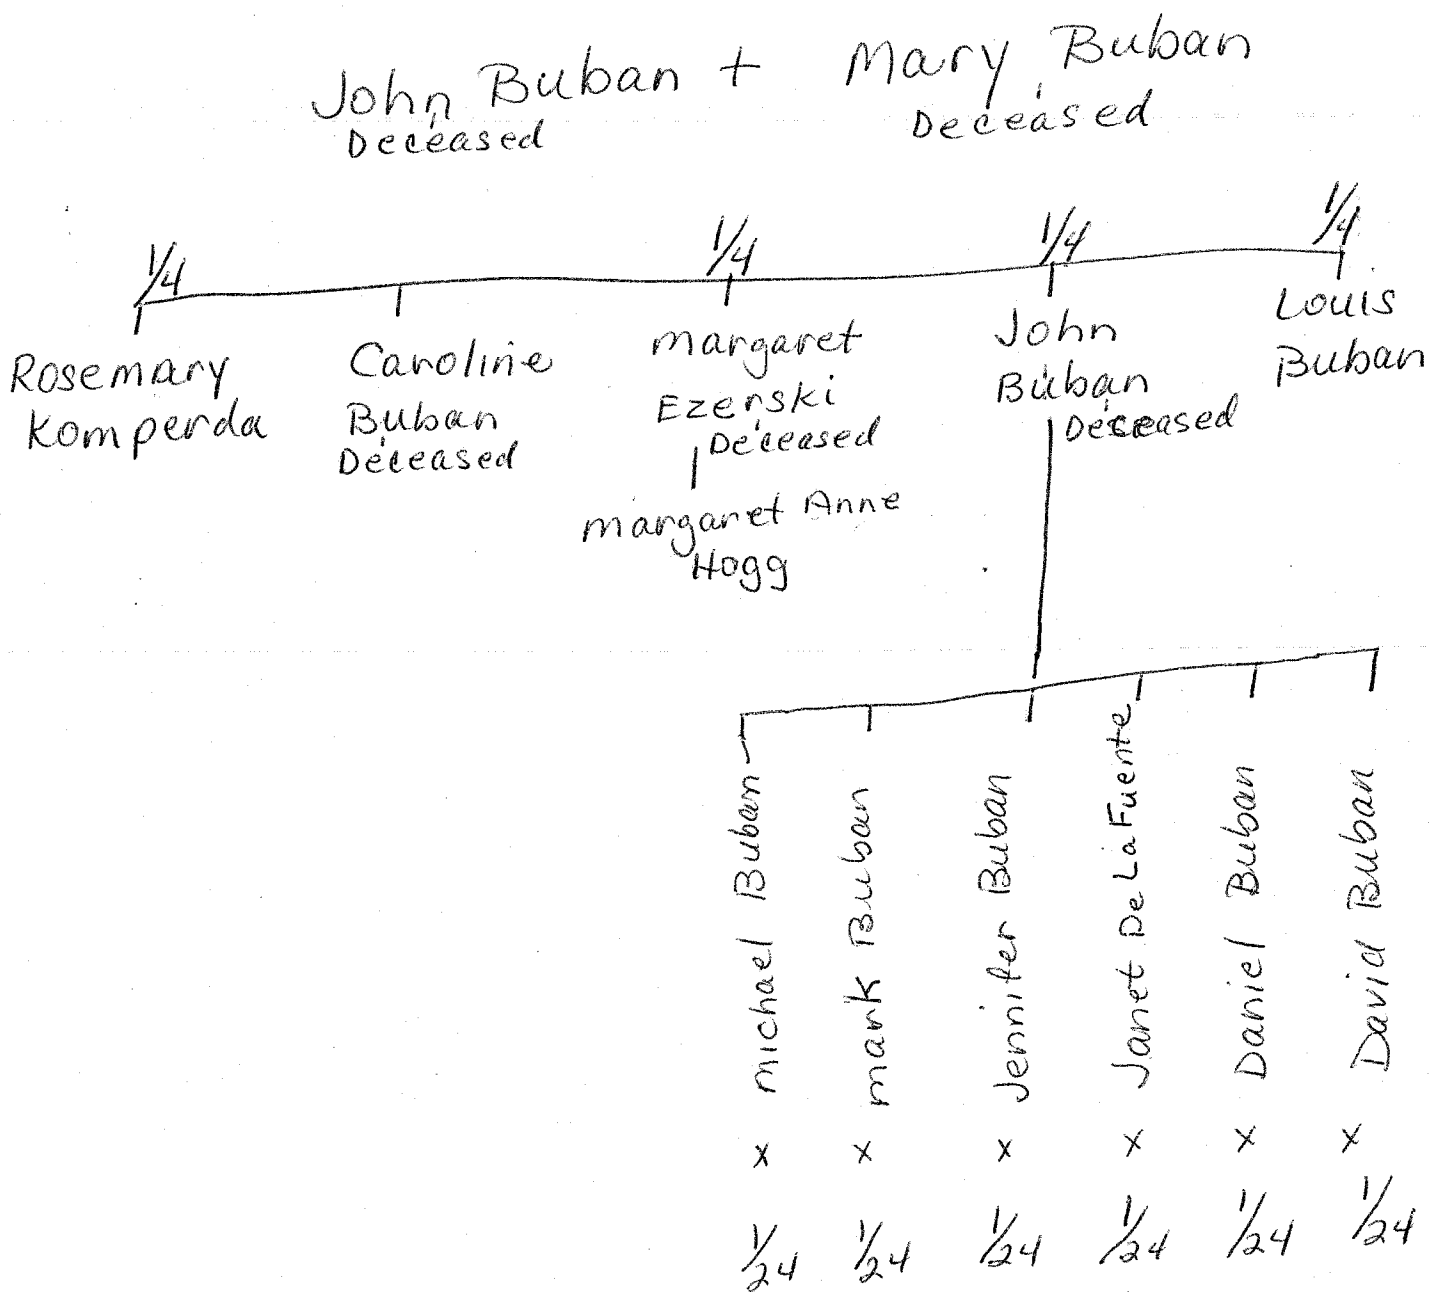 John Buban + Mary Buban
Deceased Deceased
1/4 1/4 1/4 1/4
Rosemary
Komperda
Caroline
Buban
Deceased
margaret
Ezerski
Deceased
margaret Anne
Hogg
John
Buban
Deceased
Louis
Buban
michael Buban
mark Buban
Jennifer Buban
Janet De La Fuente
Daniel Buban
David Buban
x x x x x x
1/24 1/24 1/24 1/24 1/24 1/24